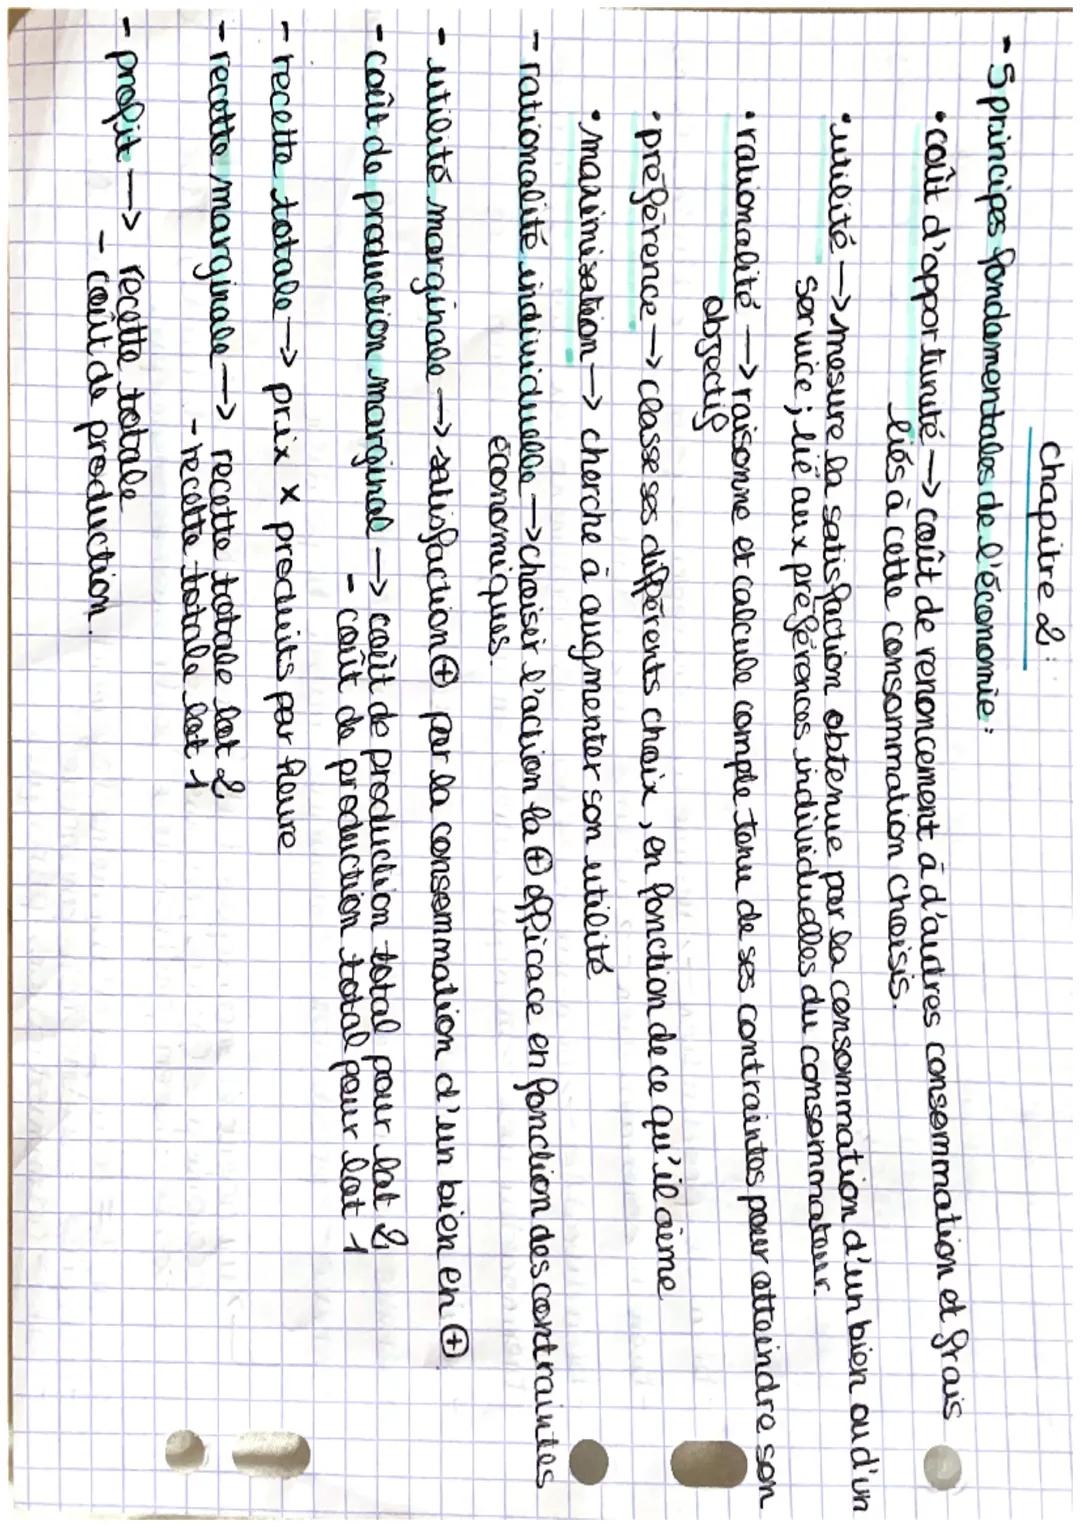 Chapitre 2:
- 5 principes fondamentales de l'économie:
• coût d'opportunité → coût de renoncement à d'autres consommation et frais
liés à cette consommation choisis.
• utilité → mesure la satisfaction obtenue par la consommation d'un bien ou d'un
service; lié aux préférences individuelles du consommateur
• rationalité → raisonne et calcule compte tenu de ses contraintes pour atteindre son
objectif
• préférence → classe ses différents choix, en fonction de ce qu'il aime
• maximisation → cherche à augmenter son utilité
- rationalité individuelle → choisir l'action la ⊕ efficace en fonction des contraintes
économiques.
- utilité marginale → satisfaction ⊕ par la consommation d'un bien en ⊕
- coût de production marginal → coût de production total pour lot 2
- coût de production total pour lot 1
- recette totale → prix x produits par heure
- recette marginale → recette totale lot 2
- recette totale lot 1
- profit → recette totale
- coût de production.